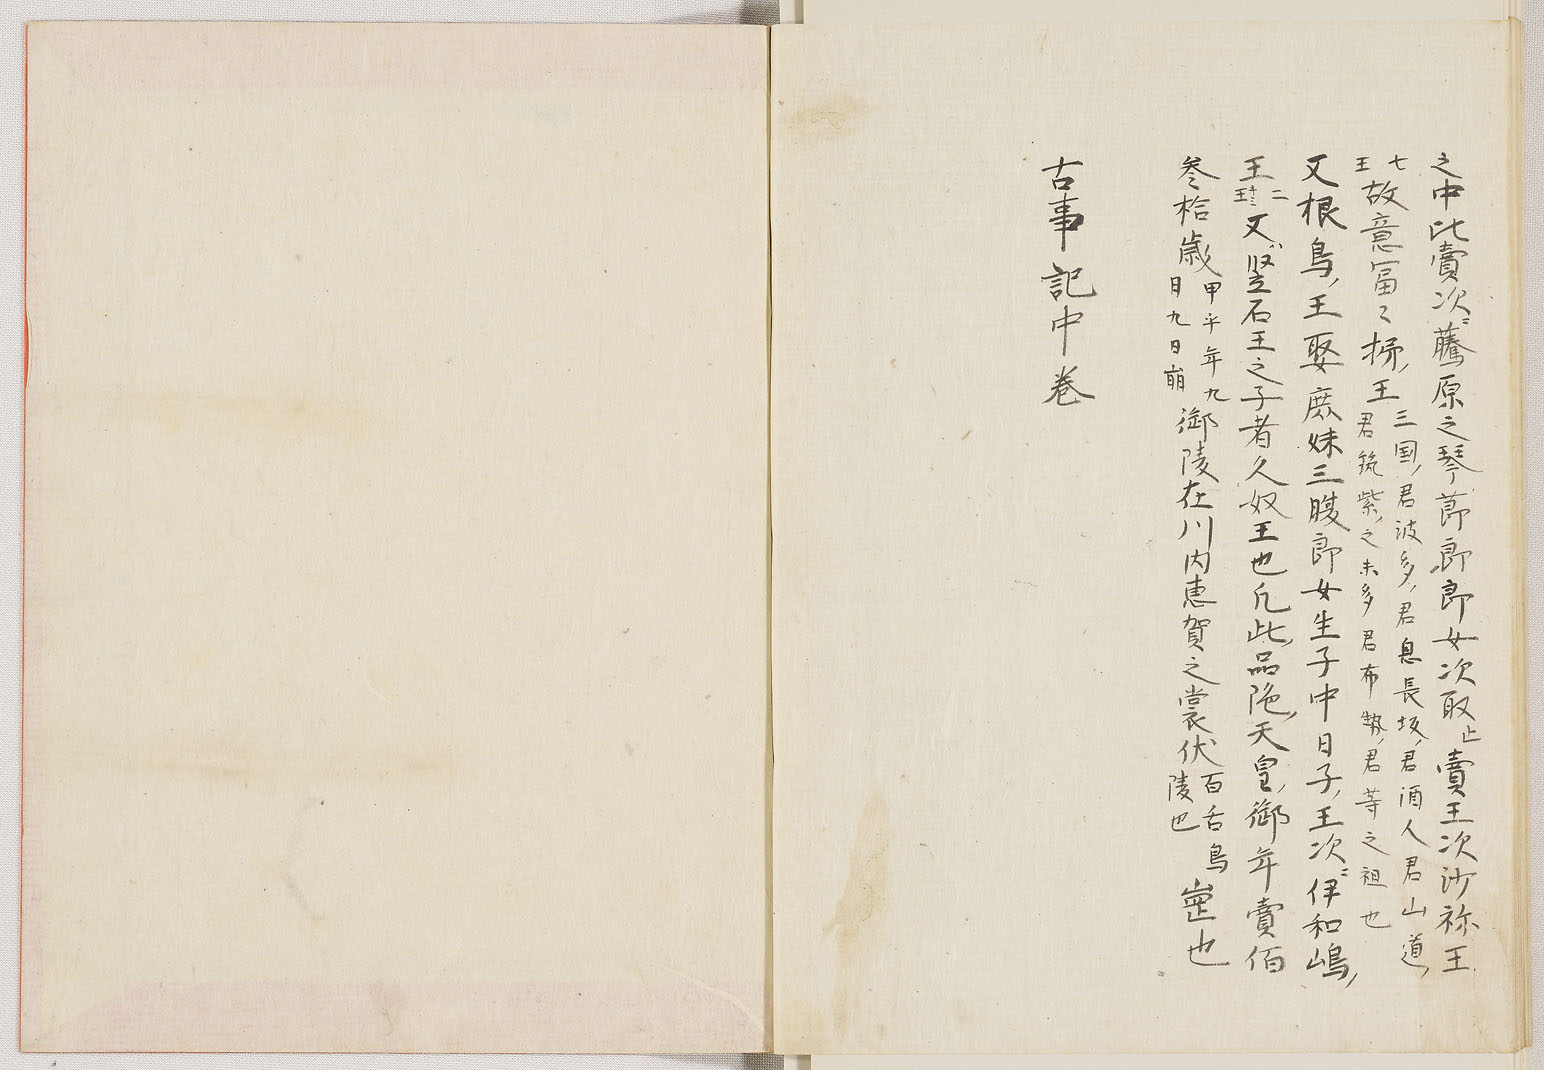 之中比賣次藤原之琴節郎郎女次取止賣王次沙祢王
七王故意冨々杼王三国君波多君息長坂君酒人君山道君筑紫之未多君布勢君等之祖也
又根鳥王娶庶妹三腹郎女生子中日子王次伊和嶋
王二柱又竪石王之子者久奴王也凡此品陁天皇御年賣佰
叄拾歳甲午年九月九日崩御陵在川内恵賀之裳伏百舌鳥陵也崗也
古事記中巻